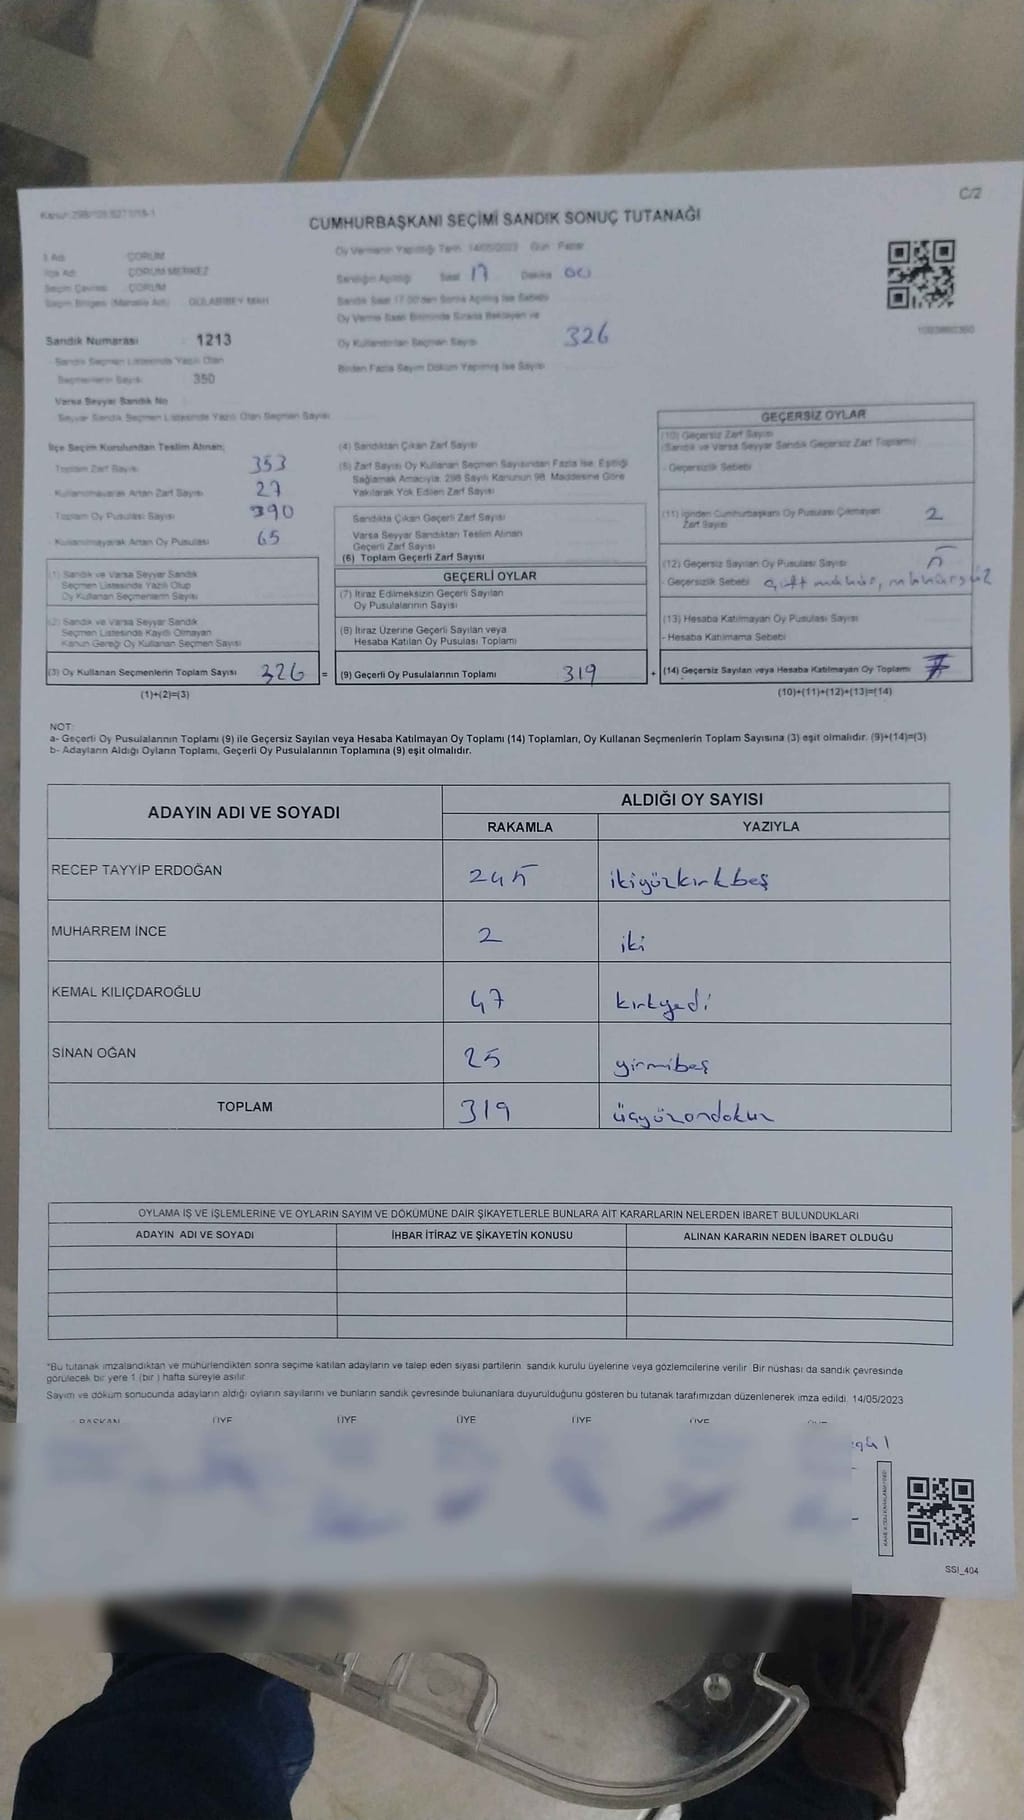 C/2
CUMHURBAŞKANI SEÇİMİ SANDIK SONUÇ TUTANAĞI
İl Adı : ÇORUM
İlçe Adı : ÇORUM MERKEZ
Seçim Çevresi : ÇORUM
Seçim Bölgesi (Mahalle Adı) : GÜLABİBEY MAH
Sandık Numarası : 1213
- Sandık Seçmen Listesinde Yazılı Olan
Seçmenlerin Sayısı : 350
Varsa Seyyar Sandık No
Seyyar Sandık Seçmen Listesinde Yazılı Olan Seçmen Sayısı
Oy Vermenin Yapıldığı Tarih 14/05/2023 Gün : Pazar
Sandığın Açıldığı Saat 17 Dakika 00
Sandık Saat 17.00'den Sonra Açılmış İse Sebebi
Oy Verme Saati Bitiminde Sırada Bekleyen ve
Oy Kullandırılan Seçmen Sayısı 326
Birden Fazla Sayım Döküm Yapılmış İse Sayısı
İlçe Seçim Kurulundan Teslim Alınan;
Toplam Zarf Sayısı 353
Kullanılmayarak Artan Zarf Sayısı 27
Toplam Oy Pusulası Sayısı 390
- Kullanılmayarak Artan Oy Pusulası 65
(1) Sandık ve Varsa Seyyar Sandık
Seçmen Listesinde Yazılı Olup
Oy Kullanan Seçmenlerin Sayısı
(2) Sandık ve Varsa Seyyar Sandık
Seçmen Listesinde Kayıtlı Olmayan
Kanun Gereği Oy Kullanan Seçmen Sayısı
(3) Oy Kullanan Seçmenlerin Toplam Sayısı 326 =
(1)+(2)=(3)
(4) Sandıktan Çıkan Zarf Sayısı
(5) Zarf Sayısı Oy Kullanan Seçmen Sayısından Fazla İse, Eşitliği
Sağlamak Amacıyla, 298 Sayılı Kanunun 98. Maddesine Göre
Yakılarak Yok Edilen Zarf Sayısı
Sandıkta Çıkan Geçerli Zarf Sayısı
Varsa Seyyar Sandıktan Teslim Alınan
Geçerli Zarf Sayısı
(6) Toplam Geçerli Zarf Sayısı
GEÇERLİ OYLAR
(7) İtiraz Edilmeksizin Geçerli Sayılan
Oy Pusulalarının Sayısı
(8) İtiraz Üzerine Geçerli Sayılan veya
Hesaba Katılan Oy Pusulası Toplamı
(9) Geçerli Oy Pusulalarının Toplamı 319 +
GEÇERSİZ OYLAR
(10) Geçersiz Zarf Sayısı
(Sandık ve Varsa Seyyar Sandık Geçersiz Zarf Toplamı)
- Geçersizlik Sebebi
(11) İçinden Cumhurbaşkanı Oy Pusulası Çıkmayan
Zarf Sayısı 2
(12) Geçersiz Sayılan Oy Pusulası Sayısı 5
- Geçersizlik Sebebi çift mühür, mühürsüz
(13) Hesaba Katılmayan Oy Pusulası Sayısı
- Hesaba Katılmama Sebebi
(14) Geçersiz Sayılan veya Hesaba Katılmayan Oy Toplamı 7
(10)+(11)+(12)+(13)=(14)
NOT:
a- Geçerli Oy Pusulalarının Toplamı (9) ile Geçersiz Sayılan veya Hesaba Katılmayan Oy Toplamı (14) Toplamları, Oy Kullanan Seçmenlerin Toplam Sayısına (3) eşit olmalıdır. (9)+(14)=(3)
b- Adayların Aldığı Oyların Toplamı, Geçerli Oy Pusulalarının Toplamına (9) eşit olmalıdır.
ADAYIN ADI VE SOYADI
ALDIĞI OY SAYISI
RAKAMLA YAZIYLA
RECEP TAYYİP ERDOĞAN 245 ikiyüzkırkbeş
MUHARREM İNCE 2 iki
KEMAL KILIÇDAROĞLU 47 kırkyedi
SİNAN OĞAN 25 yirmibeş
TOPLAM 319 üçyüzondokuz
OYLAMA İŞ VE İŞLEMLERİNE VE OYLARIN SAYIM VE DÖKÜMÜNE DAİR ŞİKAYETLERLE BUNLARA AİT KARARLARIN NELERDEN İBARET BULUNDUKLARI
ADAYIN ADI VE SOYADI İHBAR İTİRAZ VE ŞİKAYETİN KONUSU ALINAN KARARIN NEDEN İBARET OLDUĞU
*Bu tutanak imzalandıktan ve mühürlendikten sonra seçime katılan adayların ve talep eden siyasi partilerin sandık kurulu üyelerine veya gözlemcilerine verilir. Bir nüshası da sandık çevresinde
görülecek bir yere 1 (bir ) hafta süreyle asılır.
Sayım ve döküm sonucunda adayların aldığı oyların sayılarını ve bunların sandık çevresinde bulunanlara duyurulduğunu gösteren bu tutanak tarafımızdan düzenlenerek imza edildi. 14/05/2023
BAŞKAN ÜYE ÜYE ÜYE ÜYE ÜYE
SSI_404